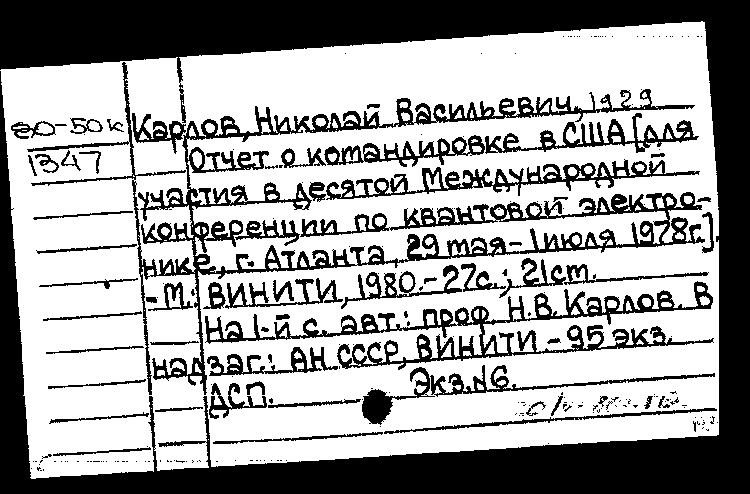 80-50к Карлов, Николай Васильевич, 1929
1347 Отчет о командировке в США [для
участия в десятой Международной
конференции по квантовой электро-
нике, г. Атланта, 29 мая - 1 июля 1978г.].
- М.: ВИНИТИ, 1980. - 27с.; 21см.
На 1-й с. авт.: проф. Н.В. Карлов. В
надзаг.: АН СССР, ВИНИТИ. - 95 экз.
ДСП. Экз.№6.